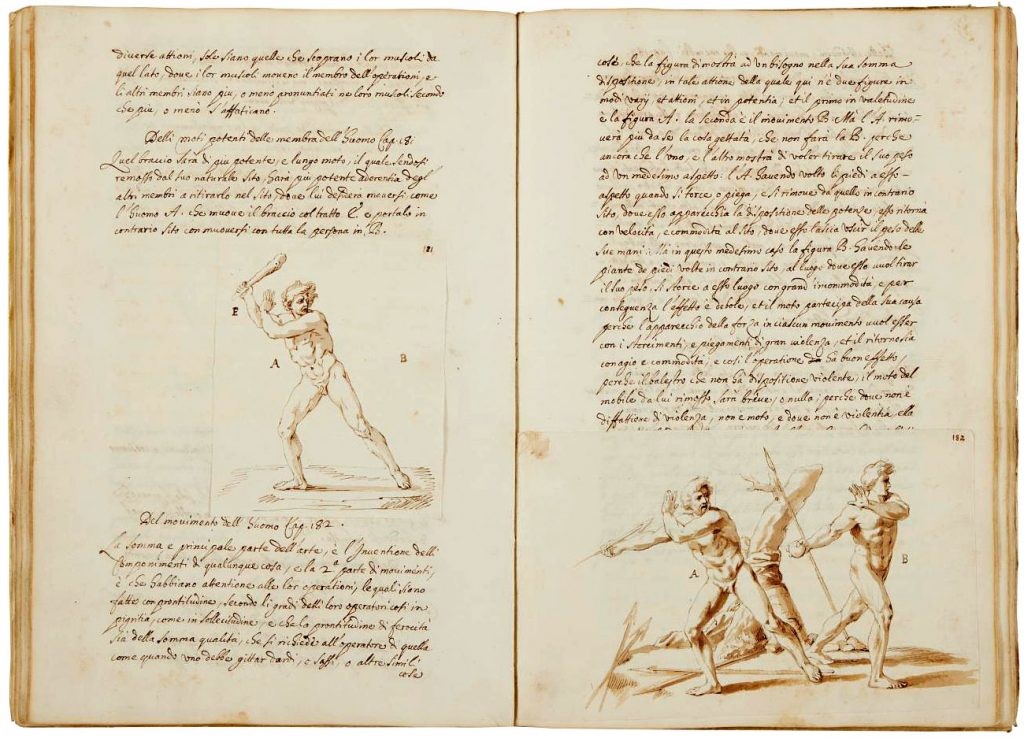 diverse attioni, solo siano quelle che scoprano i lor muscoli da
quel lato, dove i lor muscoli moveno il membro dell'operationi, e
li altri membri siano piu, o meno pronuntiati ne loro muscoli secondo
che piu, o meno s'affaticano.
Delli moti potenti delle membra dell'huomo Cap. 181
Quel braccio sarà di piu potente, e lungo moto, il quale sendosi
remosso dal suo naturale sito, harà piu potente aderentia degl'
altri membri a ritirarlo nel sito, dove lui desidera muoversi come
l'huomo A. che muove il braccio col tratto E. e portalo in
contrario sito con muoversi con tutta la persona in B.
181
E
A
B
Del movimento dell'huomo Cap. 182.
La somma e principale parte dell'arte, è l'Inventione delli
Componimenti di qualunque cosa, e la 2a parte di movimenti,
è che habbiano attentione alle lor operationi, le quali siano
fatte con prontitudine, secondo li gradi delli loro operatori cosi in
pigritia, come in sollecitudine, e che la prontitudine di ferocità
sia della somma qualità, che si richiede all'operatore di quella
come quando uno debbe gittar dardi, e sassi, o altre simili
cose
cose che la figura dimostra ad un bisogno nella sua somma
dispositione, in tale attione della quale qui n'è due figure in
modi varij et attioni, et in potentia; et il primo in valetudine
è la figura A. la seconda è il movimento B. Ma l'A rimo-
verà piu da se la cosa gettata, che non farà la B. perche
ancora che l'uno, e l'altro mostra di voler tirare il suo peso
ad un medesimo aspetto: l'A. havendo volto li piedi a esso
aspetto quando si torce o piega, e si rimove da quello in contrario
sito, dove esso apparecchia la dispositione della potenza, esso ritorna
con velocità, e commodità al sito, dove esso lascia uscir il peso delle
sue mani. Ma in questo medesimo caso la figura B. havendo le
piante de piedi volte in contrario sito, al luogo dove esso vuol tirar
il suo peso, si storce a esso luogo con grand'incommodità, e per
conseguenza l'effetto è debole, et il moto partecipa della sua causa
perche l'apparecchio della forza in ciascun movimento vuol esser
con i storcimenti, e piegamenti di gran violenza, et il ritorno sia
con agio e commodità, e cosi l'operatione ha buon effetto,
perche il balestro che non ha dispositione violente, il moto del
mobile da lui rimosso, sarà breve, o nulla; perche dove non è
disfattione di violenza, non è moto, e dove non è violentia ella
182
A
B